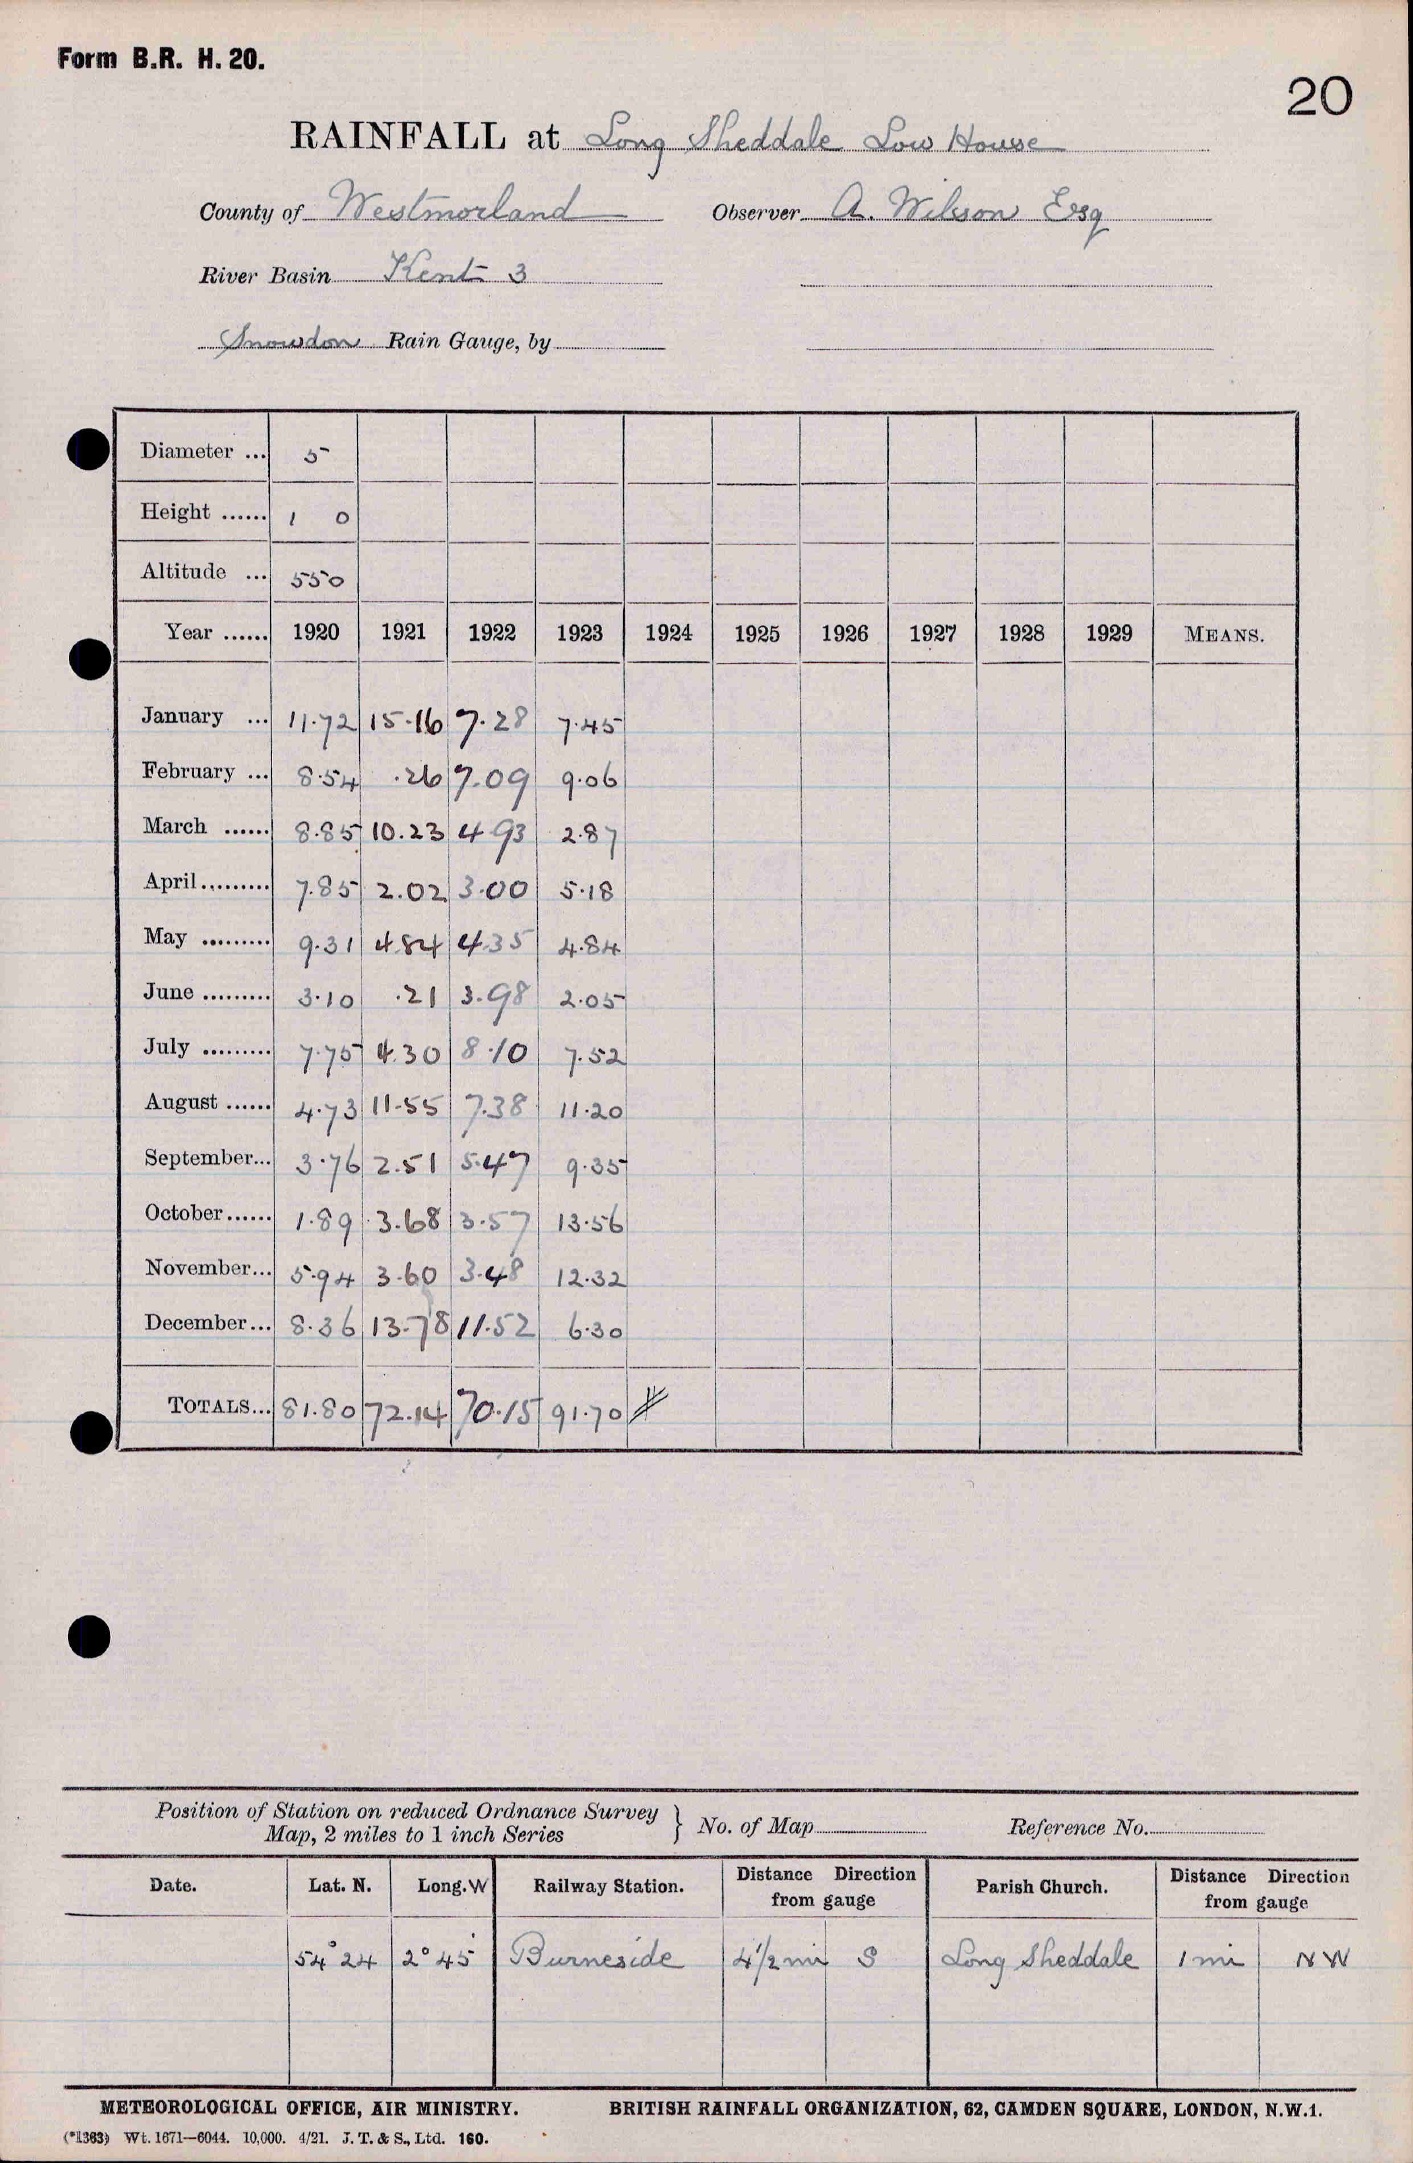 Form B.R. H. 20.
20
RAINFALL at Long Sheddale Low House
County of Westmorland Observer A. Wilson Esq
River Basin Kent 3
Snowdon Rain Gauge, by
Diameter ... 5
Height ...... 1 0
Altitude ... 550
Year ...... 1920 1921 1922 1923 1924 1925 1926 1927 1928 1929 MEANS.
January ... 11.72 15.16 7.28 7.45
February ... 8.54 .26 7.09 9.06
March ...... 8.85 10.23 4.93 2.87
April ......... 7.85 2.02 3.00 5.18
May ......... 9.31 4.84 4.35 4.84
June ......... 3.10 .21 3.98 2.05
July ......... 7.75 4.30 8.10 7.52
August ...... 4.73 11.55 7.38 11.20
September... 3.76 2.51 5.47 9.35
October...... 1.89 3.68 3.57 13.56
November... 5.94 3.60 3.48 12.32
December... 8.36 13.78 11.52 6.30
TOTALS... 81.80 72.14 70.15 91.70
Position of Station on reduced Ordnance Survey
Map, 2 miles to 1 inch Series } No. of Map Reference No.
Date. Lat. N. Long. W Railway Station. Distance Direction from gauge Parish Church. Distance Direction from gauge
54° 24 2° 45' Burneside 4 1/2 mi S Long Sheddale 1 mi NW
METEOROLOGICAL OFFICE, AIR MINISTRY. BRITISH RAINFALL ORGANIZATION, 62, CAMDEN SQUARE, LONDON, N.W.1.
(*1363) Wt. 1671—6044. 10,000. 4/21. J. T. & S., Ltd. 160.